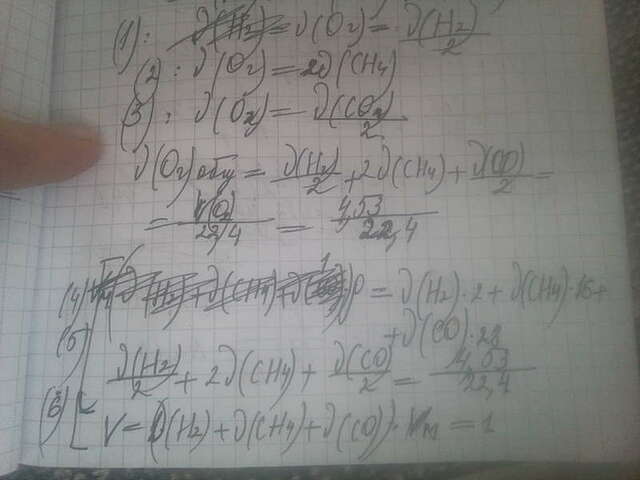 (1): ν(O₂) = ν(H₂)/2
(2): ν(O₂) = 2ν(CH₄)
(3): ν(O₂) = ν(CO)/2
ν(O₂)общ = ν(H₂)/2 + 2ν(CH₄) + ν(CO)/2 =
= V(O₂)/22,4 = 4,53/22,4
(4) = ν(H₂)·2 + ν(CH₄)·16 +
+ ν(CO)·28
(5) ν(H₂)/2 + 2ν(CH₄) + ν(CO)/2 = 4,53/22,4
(6) V = (ν(H₂) + ν(CH₄) + ν(CO))·Vm = 1